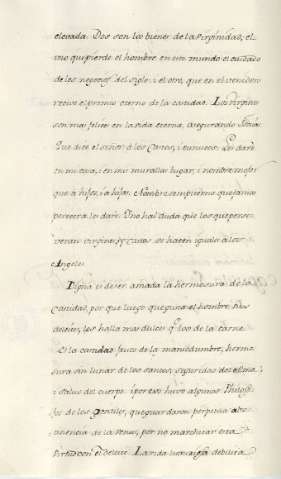 elevada. Dos son los bienes de la Virginidad, el
uno que pierde el hombre en este mundo el cuidado
de los negocios del siglo: i el otro, que en el venidero
recive el premio eterno de la castidad. Las Virgines
son mas felices en la vida eterna, asegurando
Que dice el Señor à los Castos, i eunucos: Les darè
en mi casa, i en mis murallas lugar, i nombre mejor
que à hijos, i à hijas. Nombre sempiterno que jamas
perecerà les darè. Uno hai duda que los que perse-
veran virgines, y castos se hacen iguales à los
Angeles.
Digna es de ser amada la hermosura de la
Castidad, por que luego que gusta el hombre sus
delicias, las halla mas dulces que las de la carne.
Es la castidad fruto de la mansedumbre, hermo-
sura sin lunar de los santos, seguridad de el alma,
i salud del cuerpo. i por eso huvo algunos Philoso-
fos de los Gentiles, que guardaron perpetua abs-
tinencia de la venus, por no manchar esta
Virtud con el deleite. La vida debilita